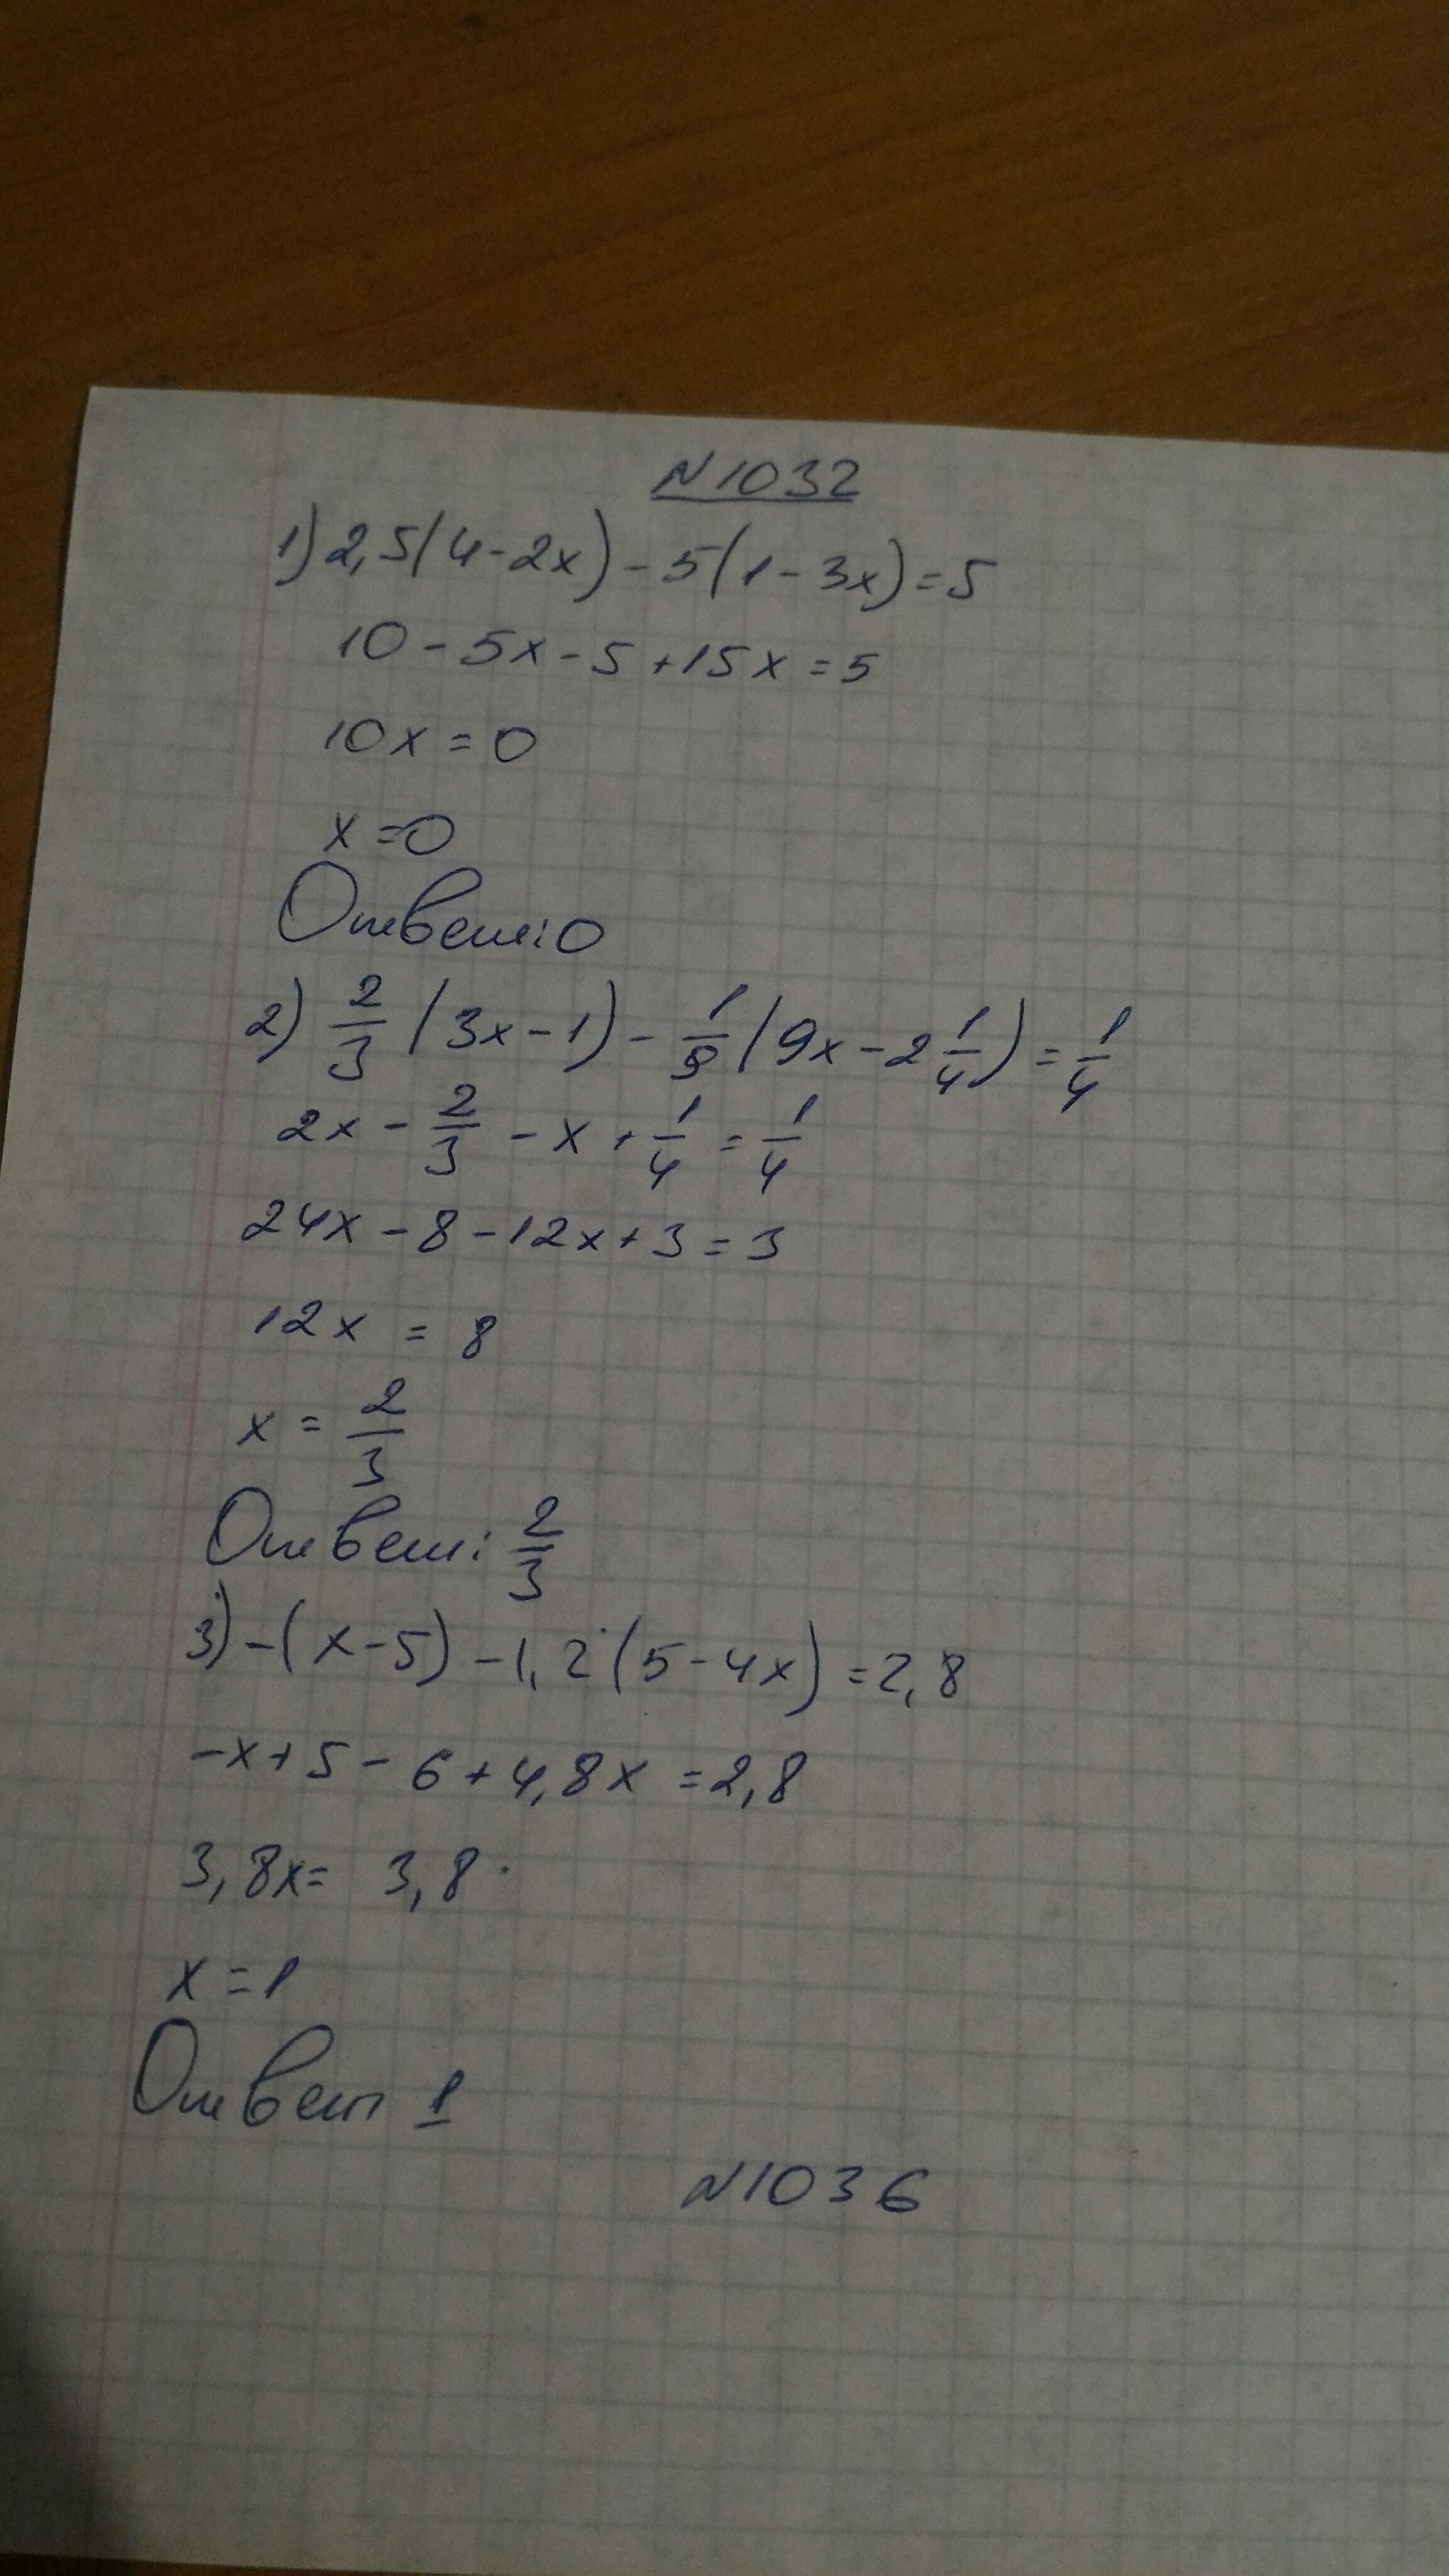 N1032
1) 2,5(4-2x)-5(1-3x)=5
10-5x-5+15x=5
10x=0
x=0
Ответ:0
2) 2/3 (3x-1) - 1/9 (9x-2 1/4) = 1/4
2x - 2/3 - x + 1/4 = 1/4
24x-8-12x+3=3
12x = 8
x = 2/3
Ответ: 2/3
3) -(x-5)-1,2(5-4x)=2,8
-x+5-6+4,8x=2,8
3,8x= 3,8
x=1
Ответ 1
N1036